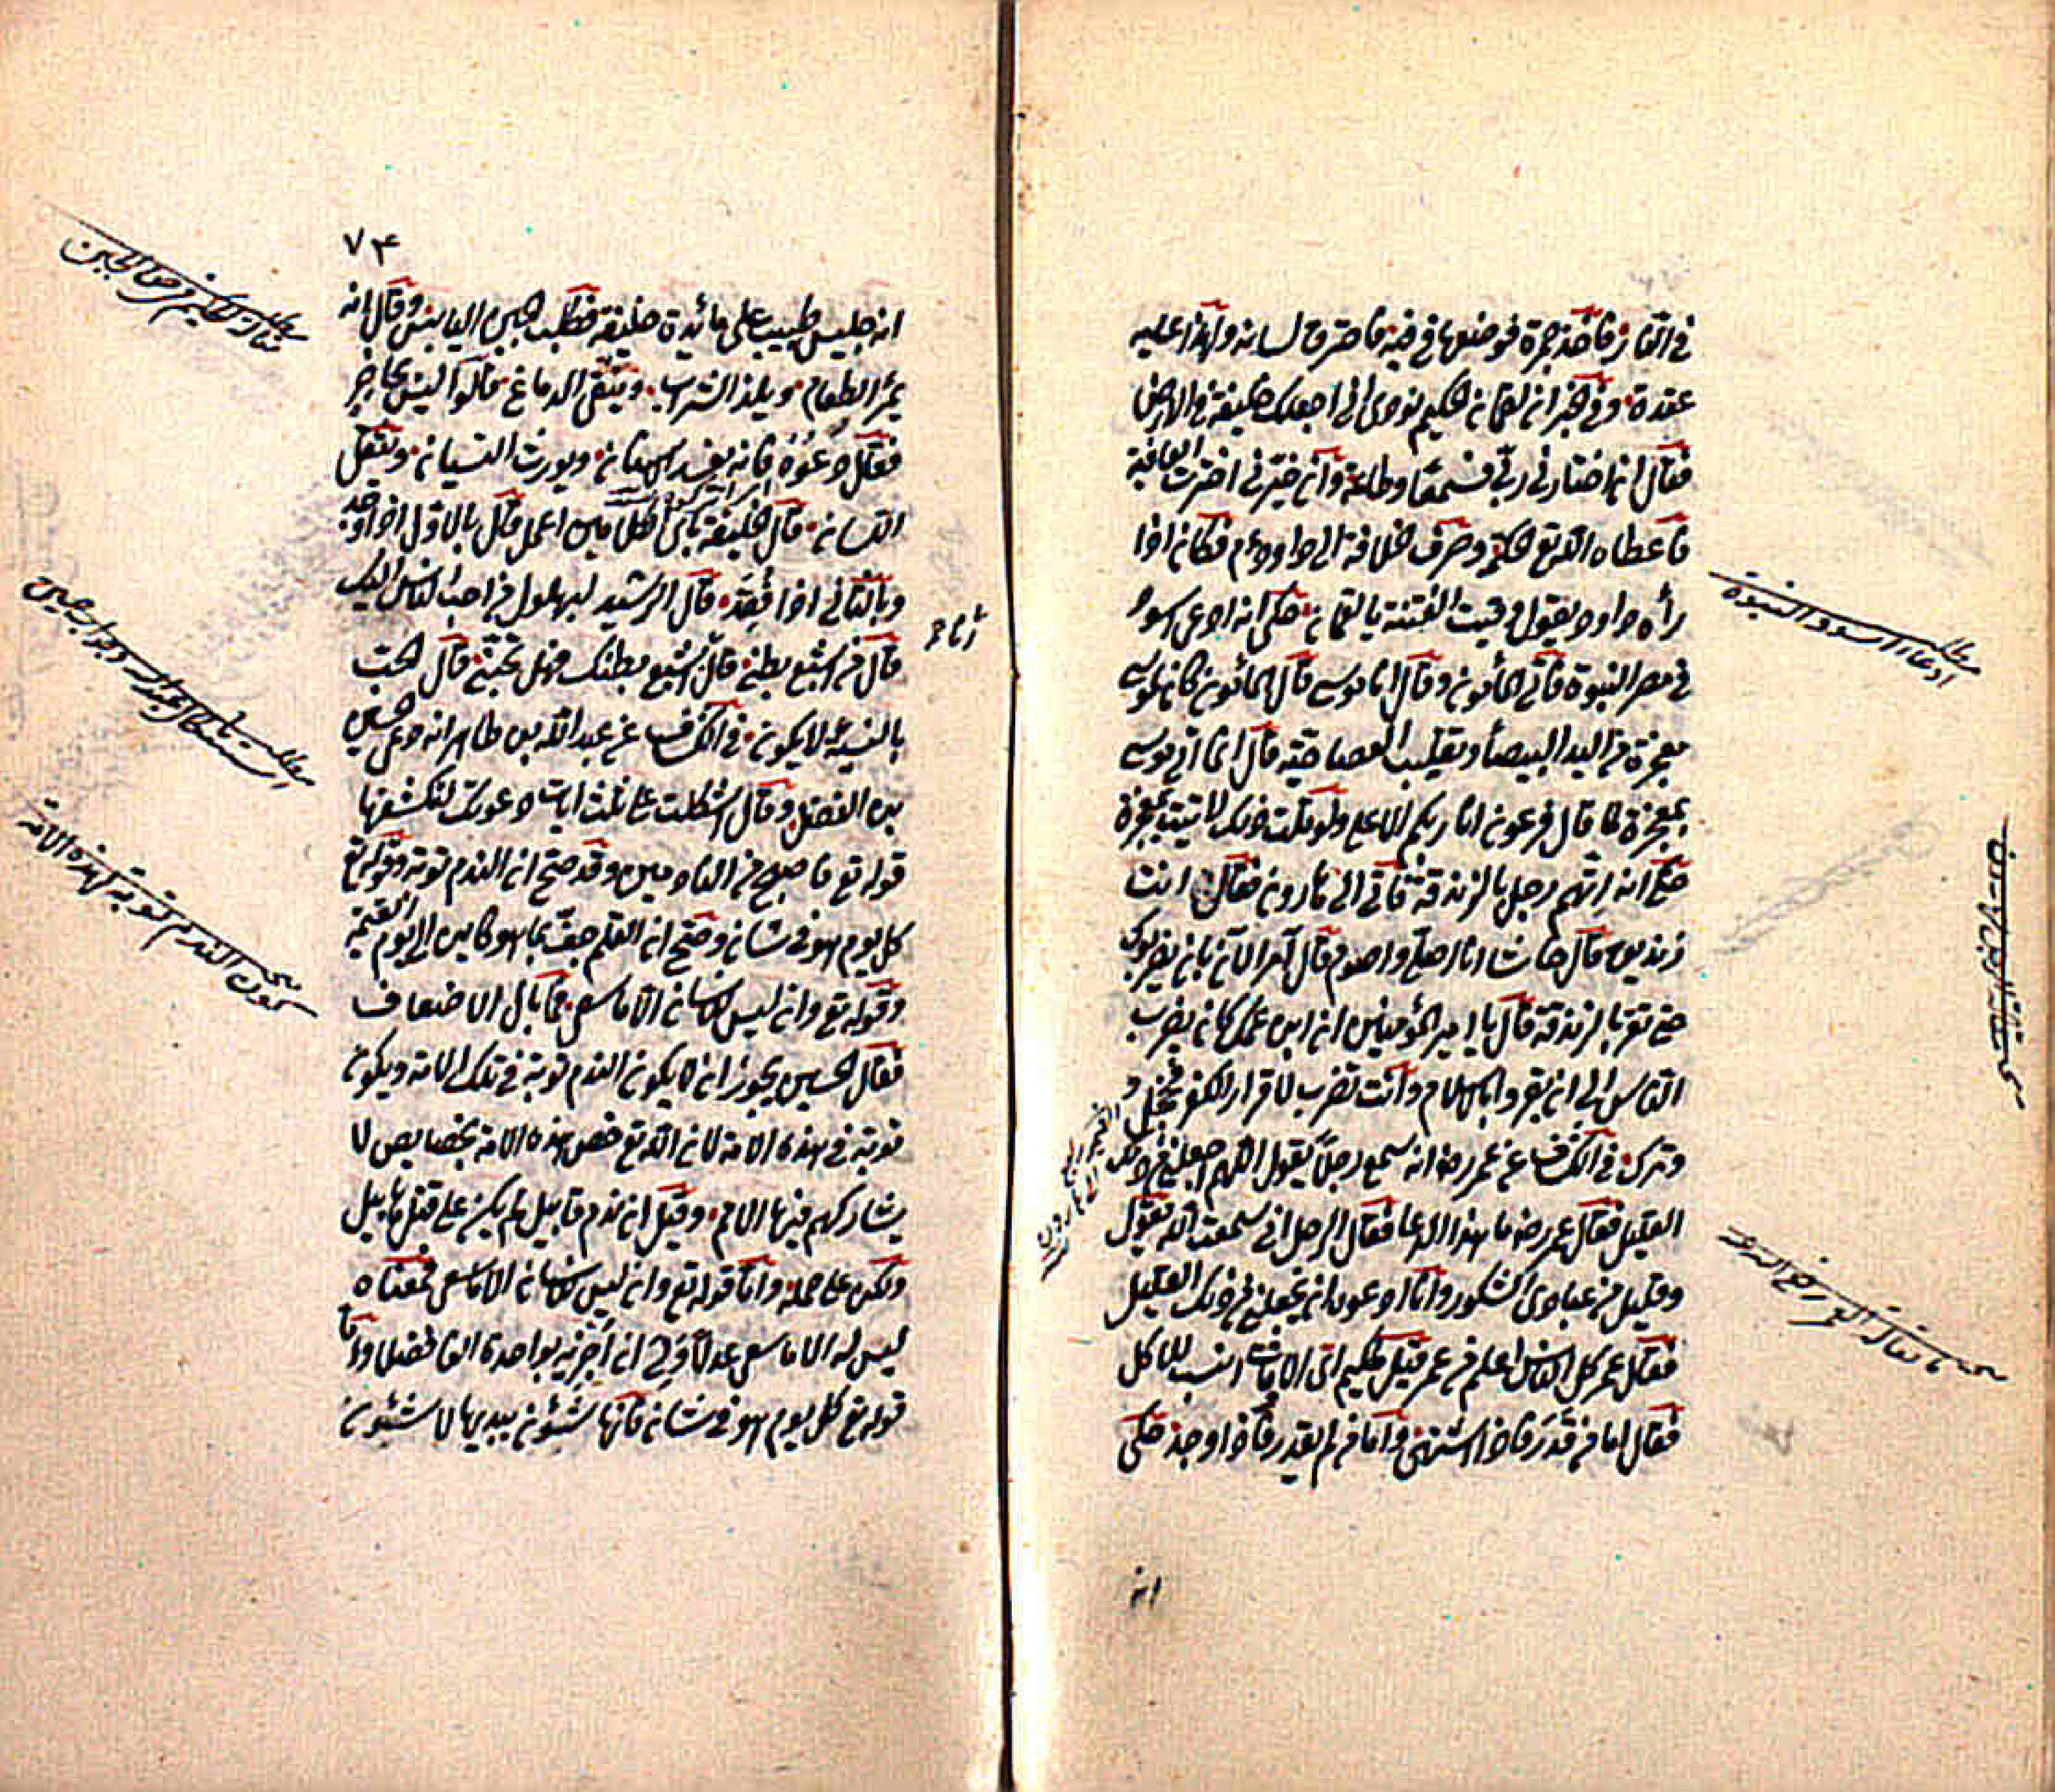 في النار فاخذ جمرة فوضعها في فيه فاحترق لسانه ولهذا عليه
عقدة وفي الخبر ان لقمان الحكيم نودي اني اجعلك خليفة في الارض
فقال ان اختارني ربي فسمعا وطاعة وان خيرني اخترت العافية
فاعطاه الله تع الحكمة وصرف الخلافة الى داود ع م فكان اذا
رأه داود يقول وقيت الفتنة يا لقمان حكي انه ادعى اسود
في مصر النبوة فاتي المأمون وقال انا موسى قال المأمون كان لموسى
معجزة من اليد البيضأ وتقليب العصا حية قال انما اتى موسى
بمعجزة لما قال فرعون انا ربكم الاعلى ولو قلت ذلك لاتيت بمعجزة
حكي انه اتهم رجل بالزندقة فاتي الى هارون فقال انت
زنديق قال حاشا انا اصلي واصوم قال آمر الآن بان يضربوك
حتى تقر بالزندقة قال يا امير المؤمنين ان ابن عمك كان يضرب
الناس الى ان يقروا بالاسلام وانت تضرب لاقرار الكفر فخجل
وتركه في الكشاف عن عمر رض انه سمع رجلا يقول اللهم اجعلني من ذلك
القليل فقال عمر رض ما هذا الدعا فقال الرجل اني سمعت الله يقول
وقليل من عبادي الشكور وانا ادعوه ان يجعلني من ذلك القليل
فقال عمر كل الناس اعلم من عمر قيل لحكيم اي الاوقات انسب للاكل
فقال اما من قدر فاذا اشتهى واما من لم يقدر فاذا وجد حكي
انه
مطلب ادعاء اسود النبوة
٧٤
انه جلس طبيب على مائدة خليفة فطلب الجبن اليابس وقال انه
يمرئ الطعام ويلذ الشراب وينقي الدماغ قالوا ليس بحاضر
فقال دعوه فانه يفسد الاسنان ويورث النسيان ويثقل
اللسان قال الخليفة باي الكلامين اعمل قال بالاول اذا وجد
وبالثاني اذا فقد قال الرشيد لبهلول من احب الناس اليك
قال من اشبع بطني قال اشبع بطنك فهل تحبني قال الحب
بالنسيئة لا يكون في الكشاف عن عبد الله بن طاهر انه دعى الحسين
بن الفضل وقال اشكلت علي ثلث ايات دعوتك لتكشفها
قوله تع فاصبح من النادمين وقد صح ان الندم توبة وقوله تع
كل يوم هو في شان وصح ان القلم جف بما هو كاين الى يوم القيمة
وقوله تع وان ليس للانسان الا ما سعى فما بال الاضعاف
فقال الحسين يجوز ان لا يكون الندم توبة في تلك الامة ويكون
توبة في هذه الامة لان الله تع خص هذه الامة بخصايص لا
يشاركهم فيها الامم وقيل ان ندم قابيل لم يكن على قتل هابيل
ولكن على حمله واما قوله تع وان ليس للانسان الا ما سعى فمعناه
ليس له الا ما سعى عدلا ولي ان اجزيه بواحدة الفا فضلا واما
قوله تع كل يوم هو في شان فانها شئون يبديها لا شئون
كون الندم توبة لهذه الامة